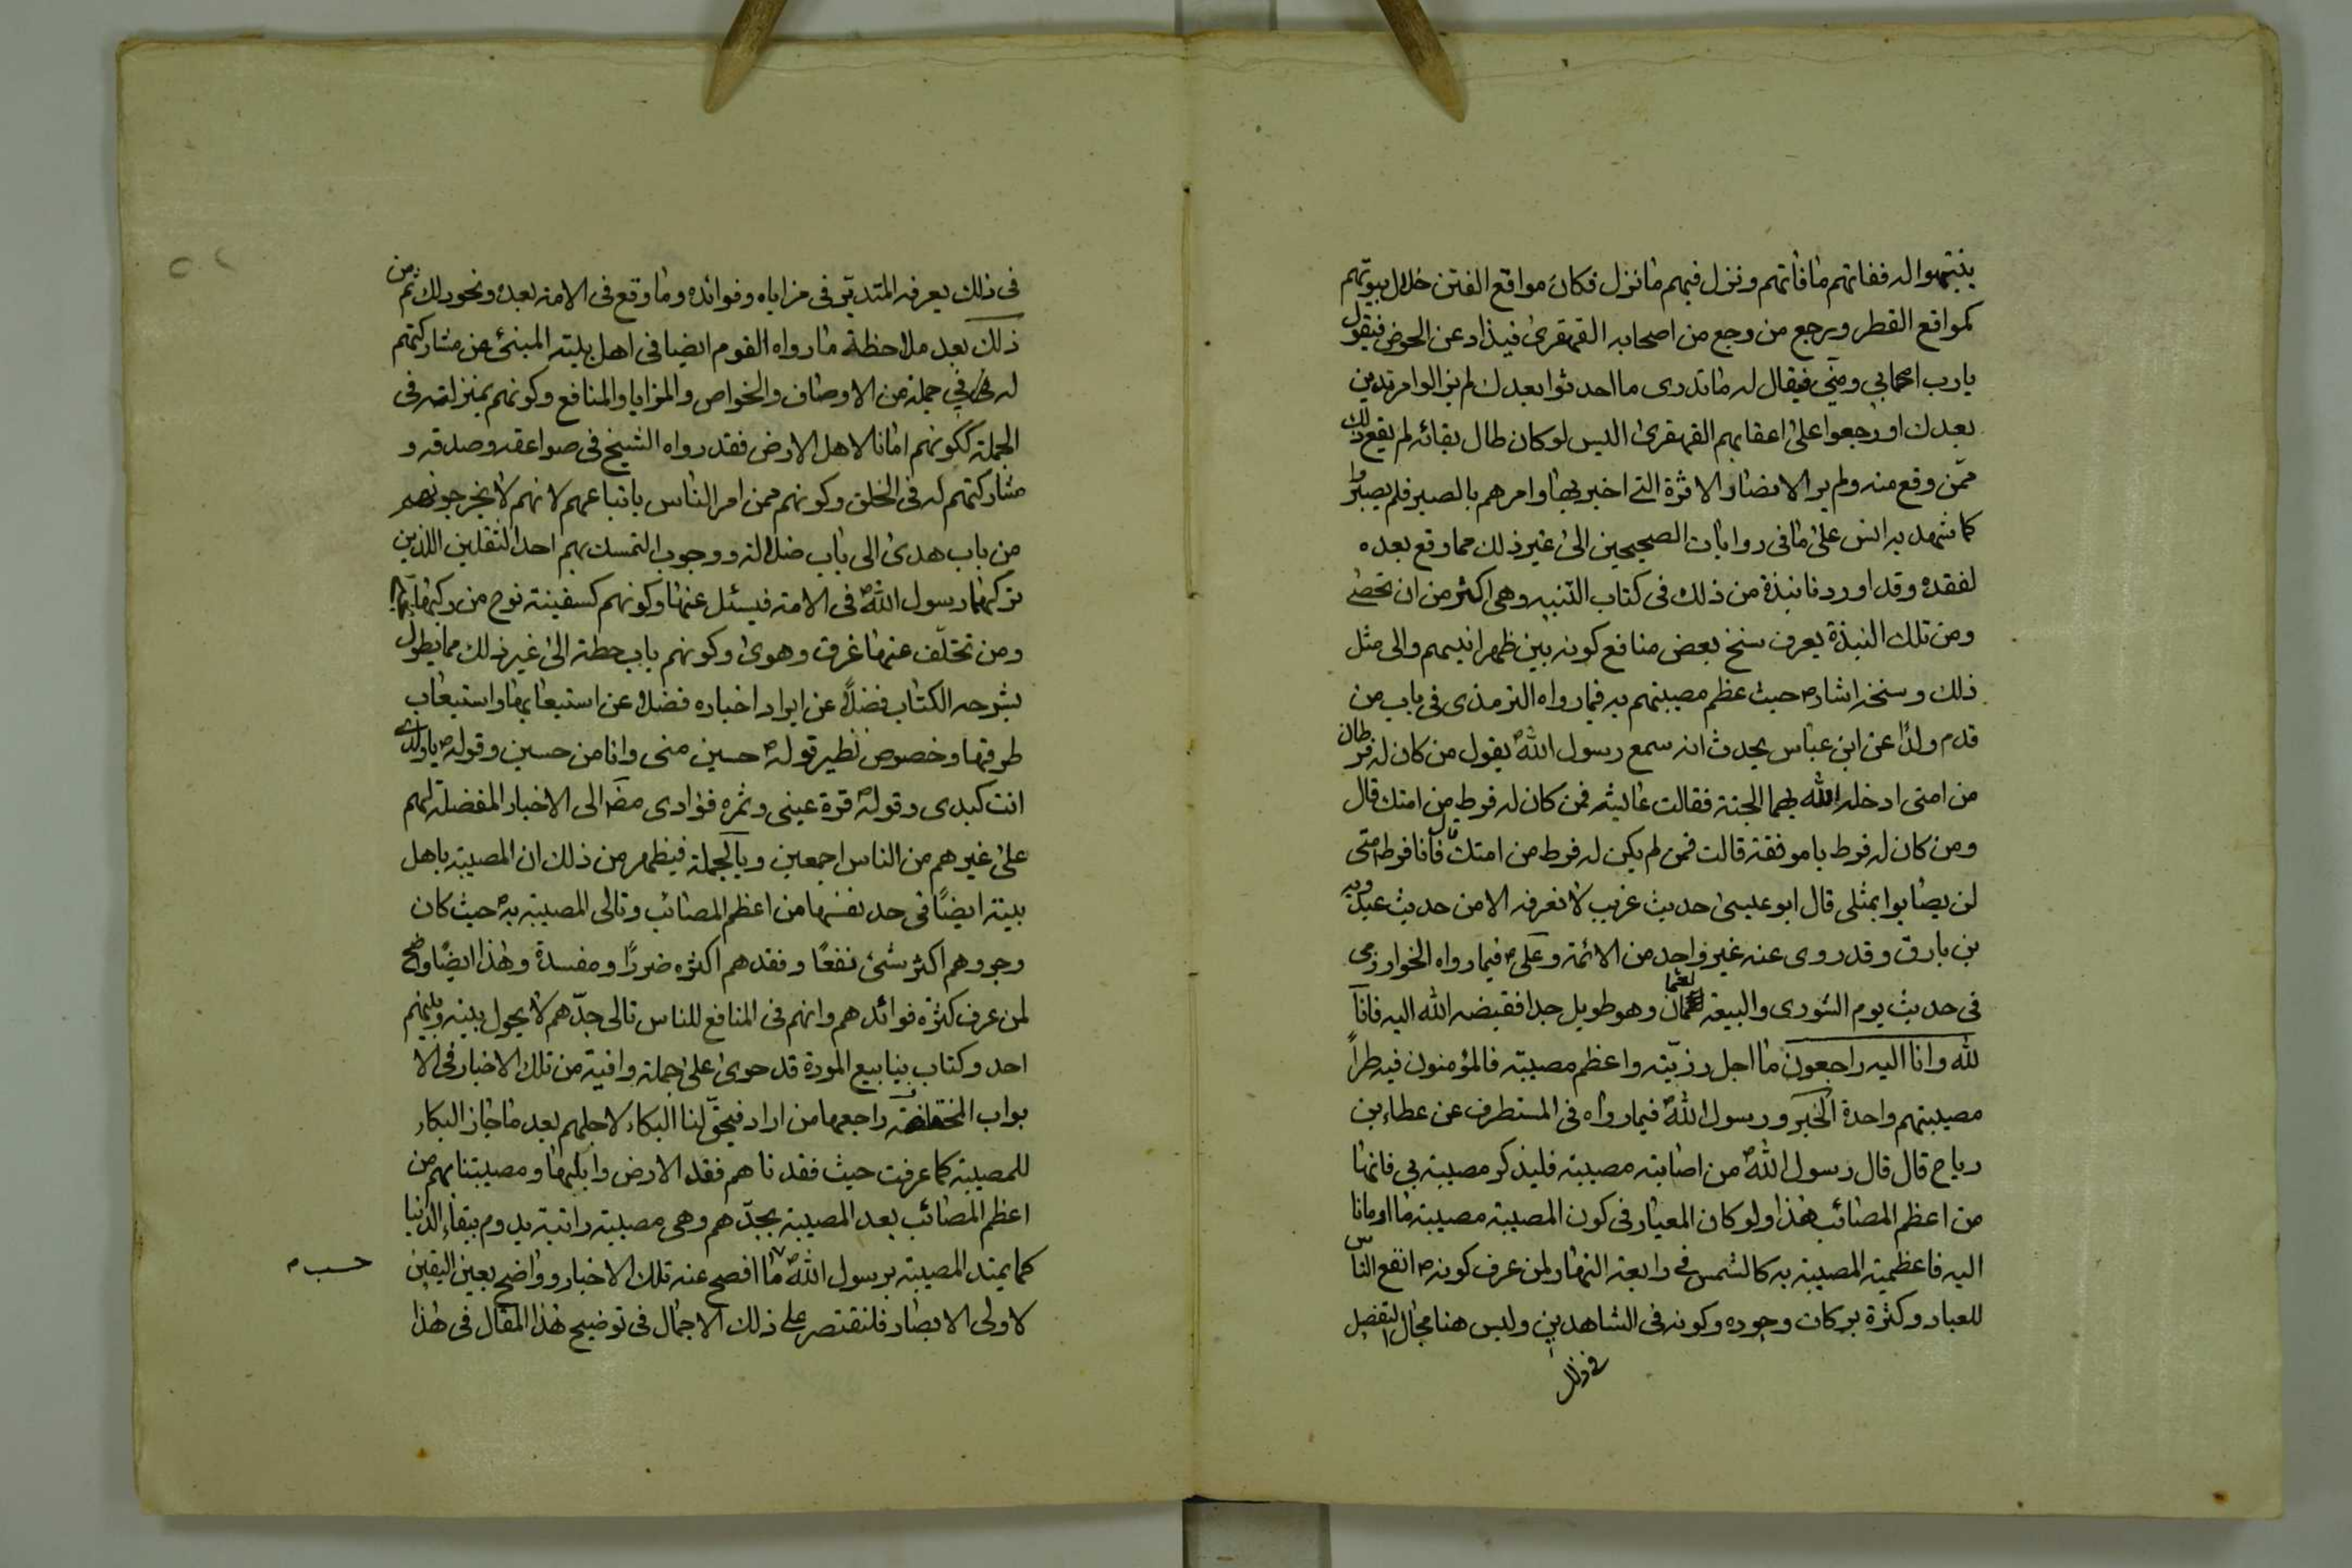 ينتبهوا له ففاتهم ما فاتهم ونزل فيهم ما نزل فكان مواقع الفتن خلال بيوتهم
كمواقع القطر ويرجع من رجع من اصحابه القهقرى فيذاد عن الحوض فيقول
يا رب اصحابي ومنّي فيقال له ما تدرى ما احدثوا بعدك لم يزالوا مرتدين
بعدك او رجعوا على اعقابهم القهقرى اليس لو كان طال بقائه لم يقع ذلك
ممّن وقع منه ولم ير الانصار الاثرة التي اخبر بها وامرهم بالصبر فلم يصبروا
كما شهد به انس على ما في روايات الصحيحين الى غير ذلك مما وقع بعده
لفقده وقد اوردنا نبذة من ذلك فى كتاب التنبيه وهى اكثر من ان تحصى
ومن تلك النبذة يعرف سنخ بعض منافع كونه بين ظهرانيهم والى مثل
ذلك وسنخه اشار ص حيث عظم مصيبتهم به فيما رواه الترمذى فى باب من
قدم ولدًا عن ابن عباس يحدث انه سمع رسول الله ص يقول من كان له فرطان
من امتى ادخله الله بهما الجنة فقالت عايشه فمن كان له فرط من امتك قال
ومن كان له فرط يا موفقة قالت فمن لم يكن له فرط من امتك قال فانا فرط امتى
لن يصابوا بمثلى قال ابو عيسى حديث غريب لا نعرفه الا من حديث عبد ربه
بن بارق وقد روى عنه غير واحد من الائمة وعلى ع فيما رواه الخوارزمى
فى حديث يوم الشورى والبيعة لعثمان وهو طويل جدا فقبضه الله اليه فانا
لله وانا اليه راجعون ما اجل رزيته واعظم مصيبته فالمؤمنون فيه طراً
مصيبتهم واحدة الخبر ورسول الله ص فيما رواه فى المستطرف عن عطاء بن
رباح قال قال رسول الله ص من اصابته مصيبة فليذكر مصيبته بي فانها
من اعظم المصائب هذا ولو كان المعيار فى كون المصيبة مصيبة ما اومانا
اليه فاعظمية المصيبة به كالشمس في رابعة النهار لمن عرف كونه ص انفع الناس
للعباد وكثرة بركات وجوده وكونه فى الشاهدين وليس هنا مجال التفصيل
فى ذلك
فى ذلك يعرفه المتدبّر فى مزاياه وفوائده وما وقع فى الامة بعده ونحو ذلك ثم من
ذلك بعد ملاحظة ما رواه القوم ايضا فى اهل بيته المنبئ عن مشاركتهم
له في جملة من الاوصاف والخواص والمزايا والمنافع وكونهم بمنزلته فى
الجملة ككونهم امانا لاهل الارض فقد رواه الشيخ فى صواعقه وصدقه و
مشاركتهم له فى الخلق وكونهم ممن امر الناس باتباعهم لانهم لا يخرجونهم
من باب هدى الى باب ضلالة ووجوب التمسك بهم احد الثقلين اللذين
تركهما رسول الله ص فى الامة فيسئل عنهما وكونهم كسفينة نوح من ركبها نجا
ومن تخلّف عنها غرق وهوى وكونهم باب حطة الى غير ذلك مما يطول
بشرحه الكتاب فضلًا عن ايراد اخباره فضلا عن استيعابها واستيعاب
طرقها وخصوص نظير قوله ص حسين منى وانا من حسين وقوله ص يا ولدي
انت كبدى وقوله ص قرة عينى وثمرة فؤادى مضا الى الاخبار المفضلة لهم
على غيرهم من الناس اجمعين وبالجملة فيظهر من ذلك ان المصيبة باهل
بيته ايضًا فى حد نفسها من اعظم المصائب وتالى المصيبة به ص حيث كان
وجودهم اكثر شئ نفعًا وفقدهم اكثره ضررًا ومفسدة وهذا ايضًا واضح
لمن عرف كثرة فوائدهم وانهم فى المنافع للناس تالى جدّهم لا يحول بينه وبينهم
احد وكتاب ينابيع المودة قد حوى على جملة وافية من تلك الاخبار فى الا
بواب المختلفة راجعها من اراد فيحقّ لنا البكاء لاجلهم بعد ما جاز البكاء
للمصيبة كما عرفت حيث فقدناهم فقد الارض وابلها ومصيبتنا بهم من
اعظم المصائب بعد المصيبة بجدّهم وهى مصيبة راتبة يدوم ببقاء الدنيا
كما يمتد المصيبة برسول الله ص ما افصح عنه تلك الاخبار وواضح بعين اليقين
حسب م
لاولى الابصار فلنقتصر على ذلك الاجمال فى توضيح هذا المقال فى هذا